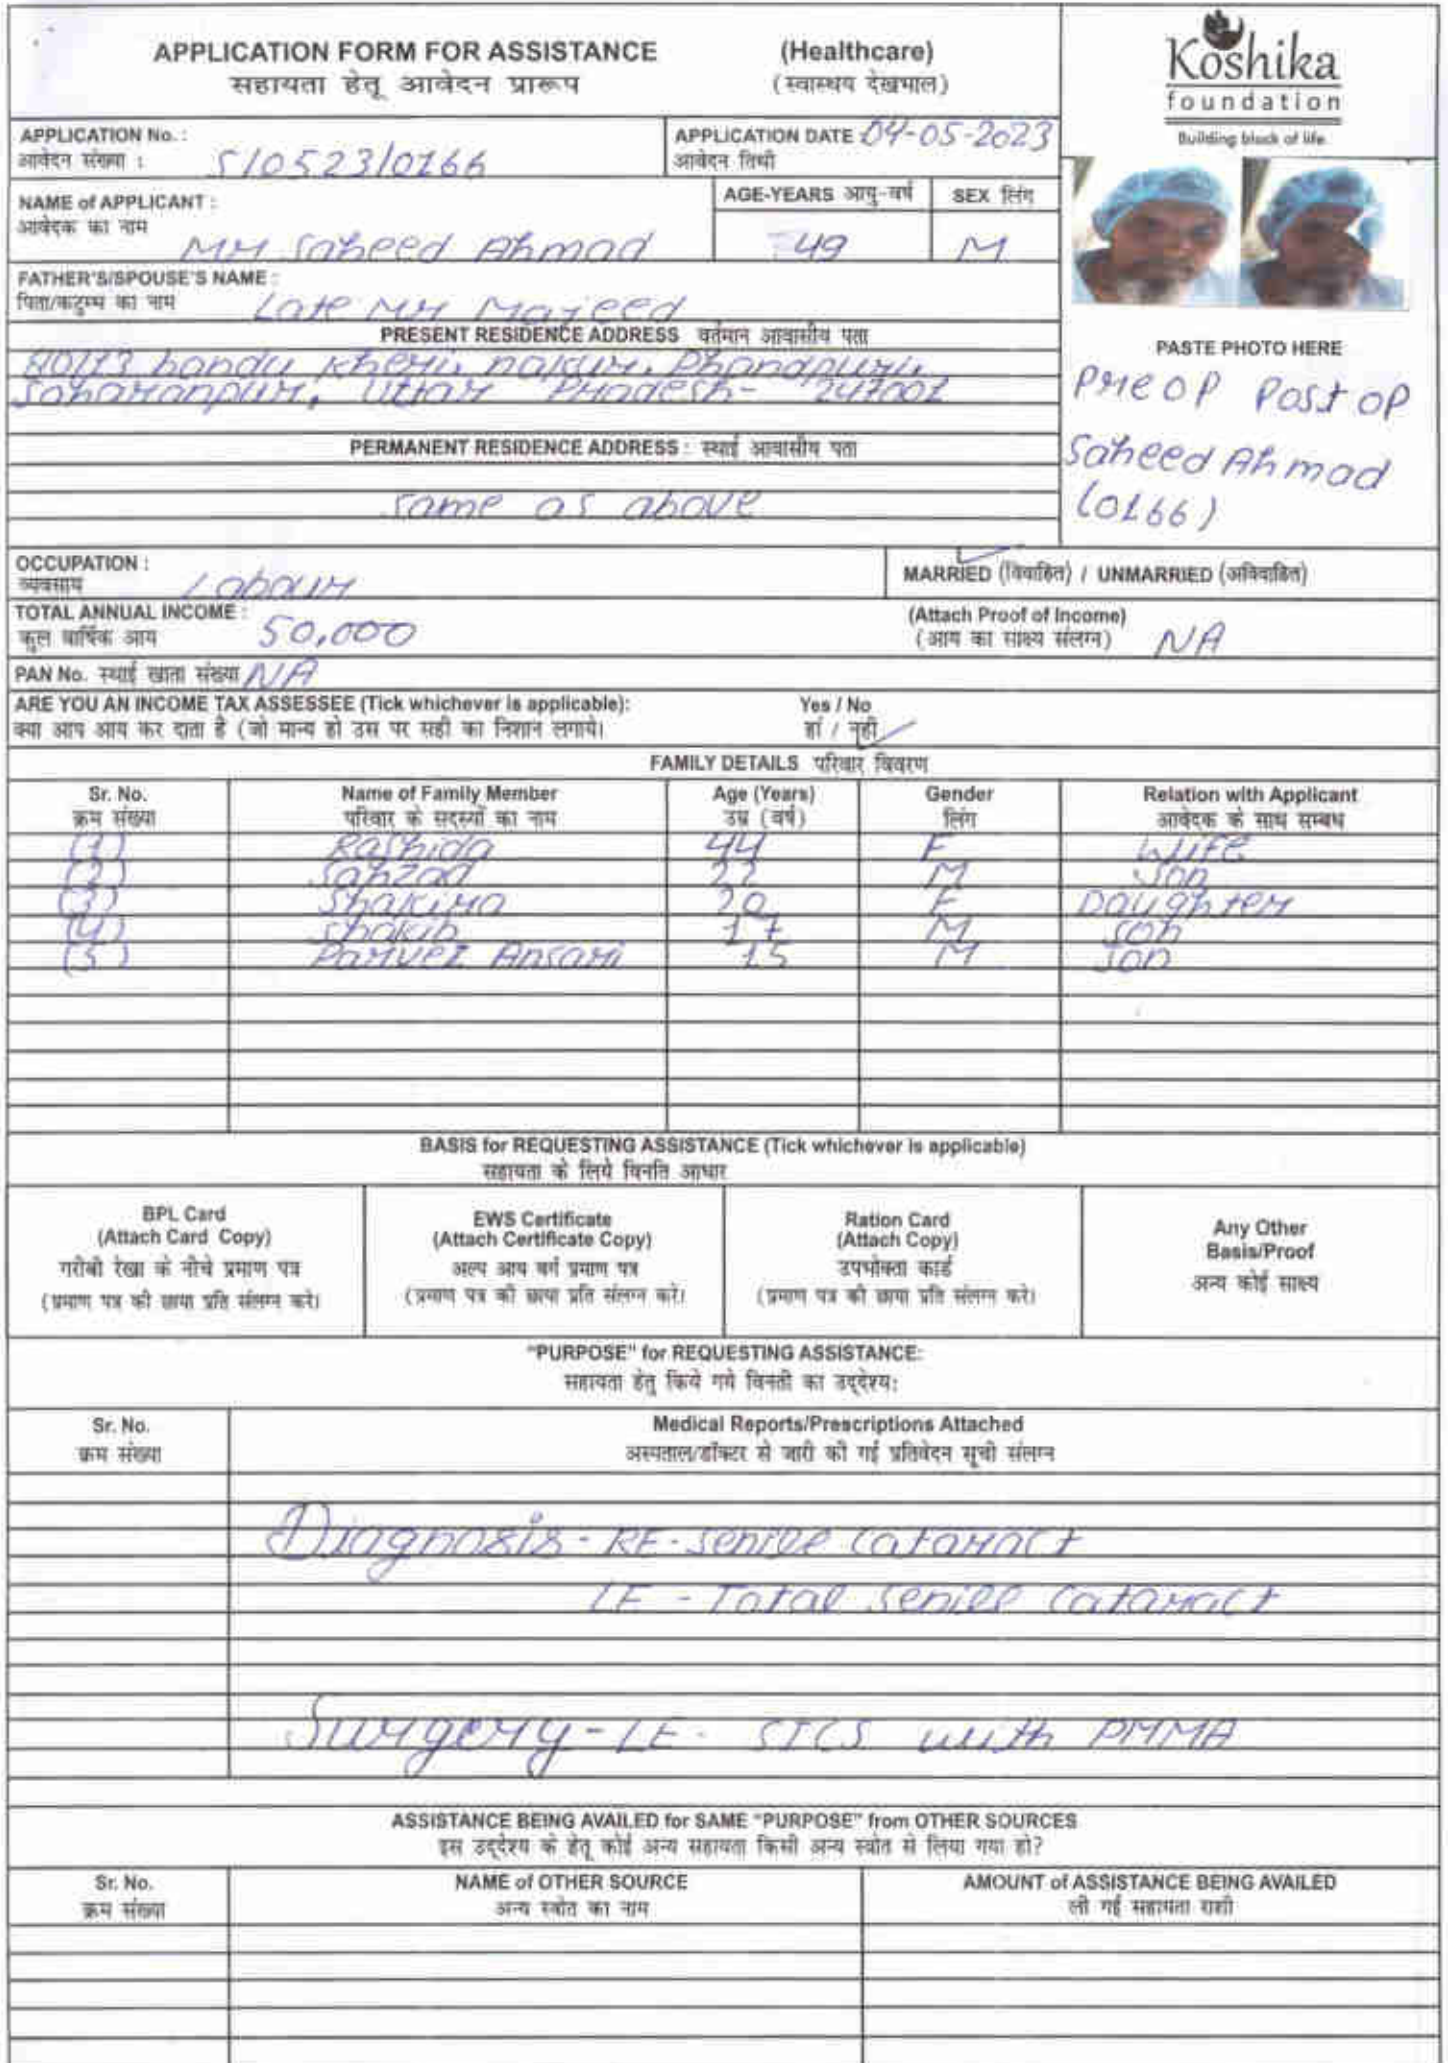 APPLICATION FORM FOR ASSISTANCE (Healthcare)
सहायता हेतू आवेदन प्रारूप (स्वास्थय देखभाल)
Koshika
foundation
Building block of life
APPLICATION No. : S/0523/0166
आवेदन संख्या :
APPLICATION DATE 04-05-2023
आवेदन तिथी
NAME of APPLICANT :
आवेदक का नाम
Mr Saheed Ahmad
AGE-YEARS आयु-वर्ष
49
SEX लिंग
M
FATHER'S/SPOUSE'S NAME :
पिता/कटुम्ब का नाम Late Mr Majeed
PRESENT RESIDENCE ADDRESS वर्तमान आवासीय पता
bandu kheri, nakur,
Saharanpur, Uttar Pradesh- 247001
PERMANENT RESIDENCE ADDRESS : स्थाई आवासीय पता
same as above
PASTE PHOTO HERE
Pre OP Post OP
Saheed Ahmad
(0166)
OCCUPATION :
व्यवसाय Labour
MARRIED (विवाहित) / UNMARRIED (अविवाहित)
TOTAL ANNUAL INCOME :
कुल वार्षिक आय 50,000
(Attach Proof of Income)
(आय का साक्ष्य संलग्न) NA
PAN No. स्थाई खाता संख्या NA
ARE YOU AN INCOME TAX ASSESSEE (Tick whichever is applicable): Yes / No
क्या आप आय कर दाता है (जो मान्य हो उस पर सही का निशान लगाये। हां / नही
FAMILY DETAILS परिवार विवरण
Sr. No. Name of Family Member Age (Years) Gender Relation with Applicant
क्रम संख्या परिवार के सदस्यों का नाम उम्र (वर्ष) लिंग आवेदक के साथ सम्बध
(1) Rashida 44 F Wife
(2) Sahzad 22 M Son
(3) Shakira 20 F Daughter
(4) Shakib 17 M son
(5) Parvez Ansari 15 M Son
BASIS for REQUESTING ASSISTANCE (Tick whichever is applicable)
सहायता के लिये विनति आधार
BPL Card
(Attach Card Copy)
गरीबी रेखा के नीचे प्रमाण पत्र
(प्रमाण पत्र की छाया प्रति संलग्न करे।
EWS Certificate
(Attach Certificate Copy)
अल्प आय वर्ग प्रमाण पत्र
(प्रमाण पत्र की छाया प्रति संलग्न करे।
Ration Card
(Attach Copy)
उपभोक्ता कार्ड
(प्रमाण पत्र की छाया प्रति संलग्न करे।
Any Other
Basis/Proof
अन्य कोई साक्ष्य
"PURPOSE" for REQUESTING ASSISTANCE:
सहायता हेतु किये गये विनती का उद्देश्य:
Sr. No. Medical Reports/Prescriptions Attached
क्रम संख्या अस्पताल/डॉक्टर से जारी की गई प्रतिवेदन सूची संलग्न
Diagnosis - RE - Senile Cataract
LE - Total Senile Cataract
Surgery - LE - SICS with PMMA
ASSISTANCE BEING AVAILED for SAME "PURPOSE" from OTHER SOURCES
इस उद्देश्य के हेतू कोई अन्य सहायता किसी अन्य स्त्रोत से लिया गया हो?
Sr. No. NAME of OTHER SOURCE AMOUNT of ASSISTANCE BEING AVAILED
क्रम संख्या अन्य स्त्रोत का नाम ली गई सहायता राशी